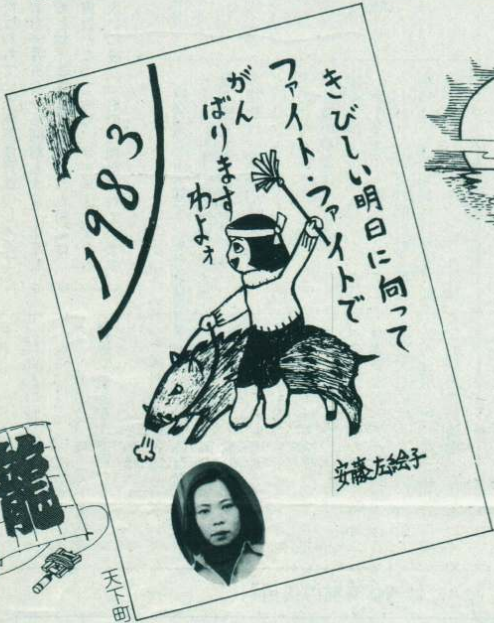 1983
きびしい明日に向って
ファイト・ファイトで
がん
ばります
わよォ
安藤左絵子
龍
天下町